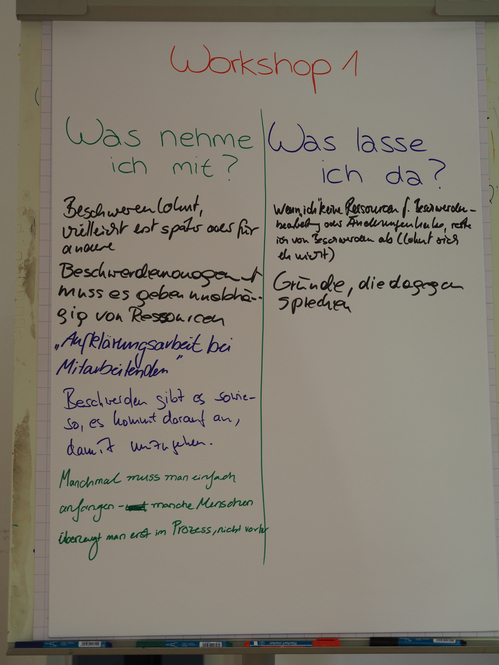 Workshop 1
Was nehme
ich mit?
Beschweren lohnt,
vielleicht erst später oder für
andere
Beschwerdemanagement
muss es geben unabhän-
gig von Ressourcen
„Aufklärungsarbeit bei
Mitarbeitenden"
Beschwerden gibt es sowie-
so, es kommt darauf an,
damit umzugehen.
Manchmal muss man einfach
anfangen - manche Menschen
überzeugt man erst im Prozess, nicht vorher
Was lasse
ich da?
Wenn ich keine Ressourcen f. Beschwerde-
bearbeitung oder Änderungen habe, rate
ich von Beschwerden ab (lohnt sich
eh nicht)
Gründe, die dagegen
sprechen